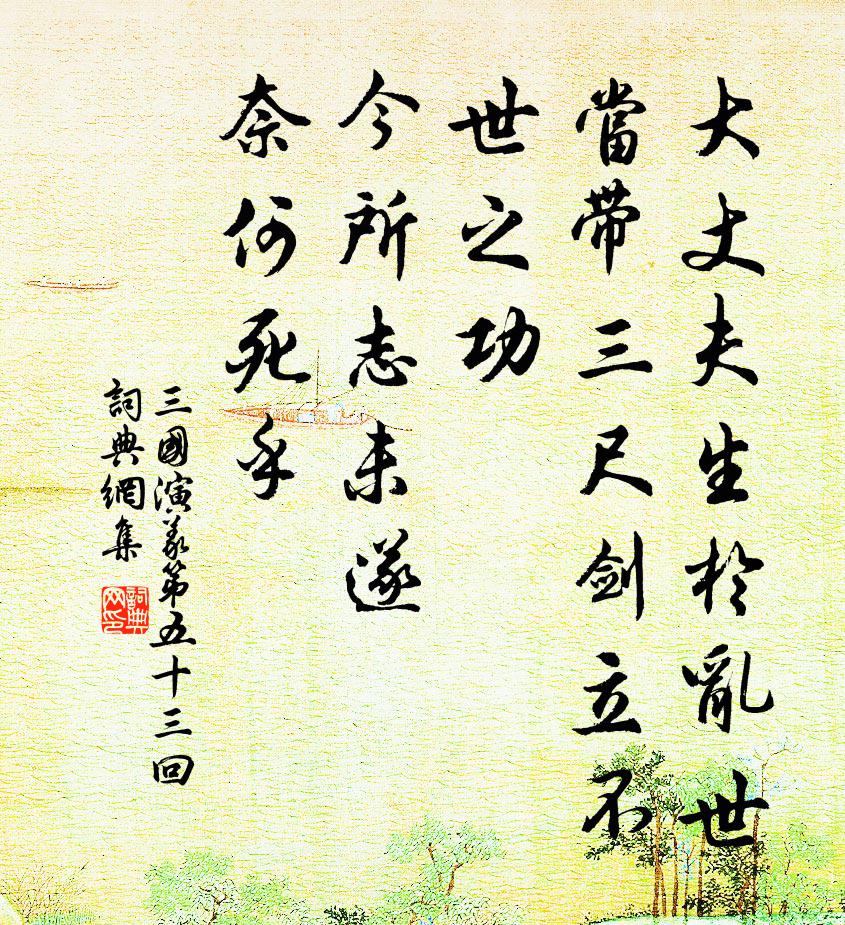 大丈夫生於亂世
當带三尺劍立不
世之功
今所志未遂
奈何死乎
三國演義第五十三回
詞典網集
詞典网印